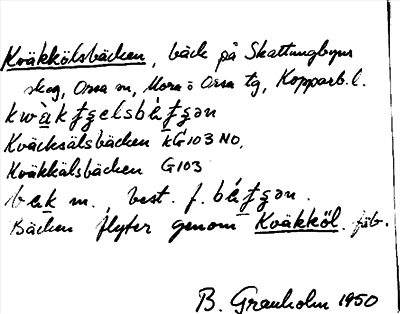 Kväkkölsbäcken, bäck på Skattungbyns
skog, Orsa sn, Mora o Orsa tg, Kopparb. l.
Kväcksälsbäcken kG103 NO,
Kväkkälsbäcken G103
best. f.
Bäcken flyter genom Kväkköl. fäb.
B. Granholm 1950